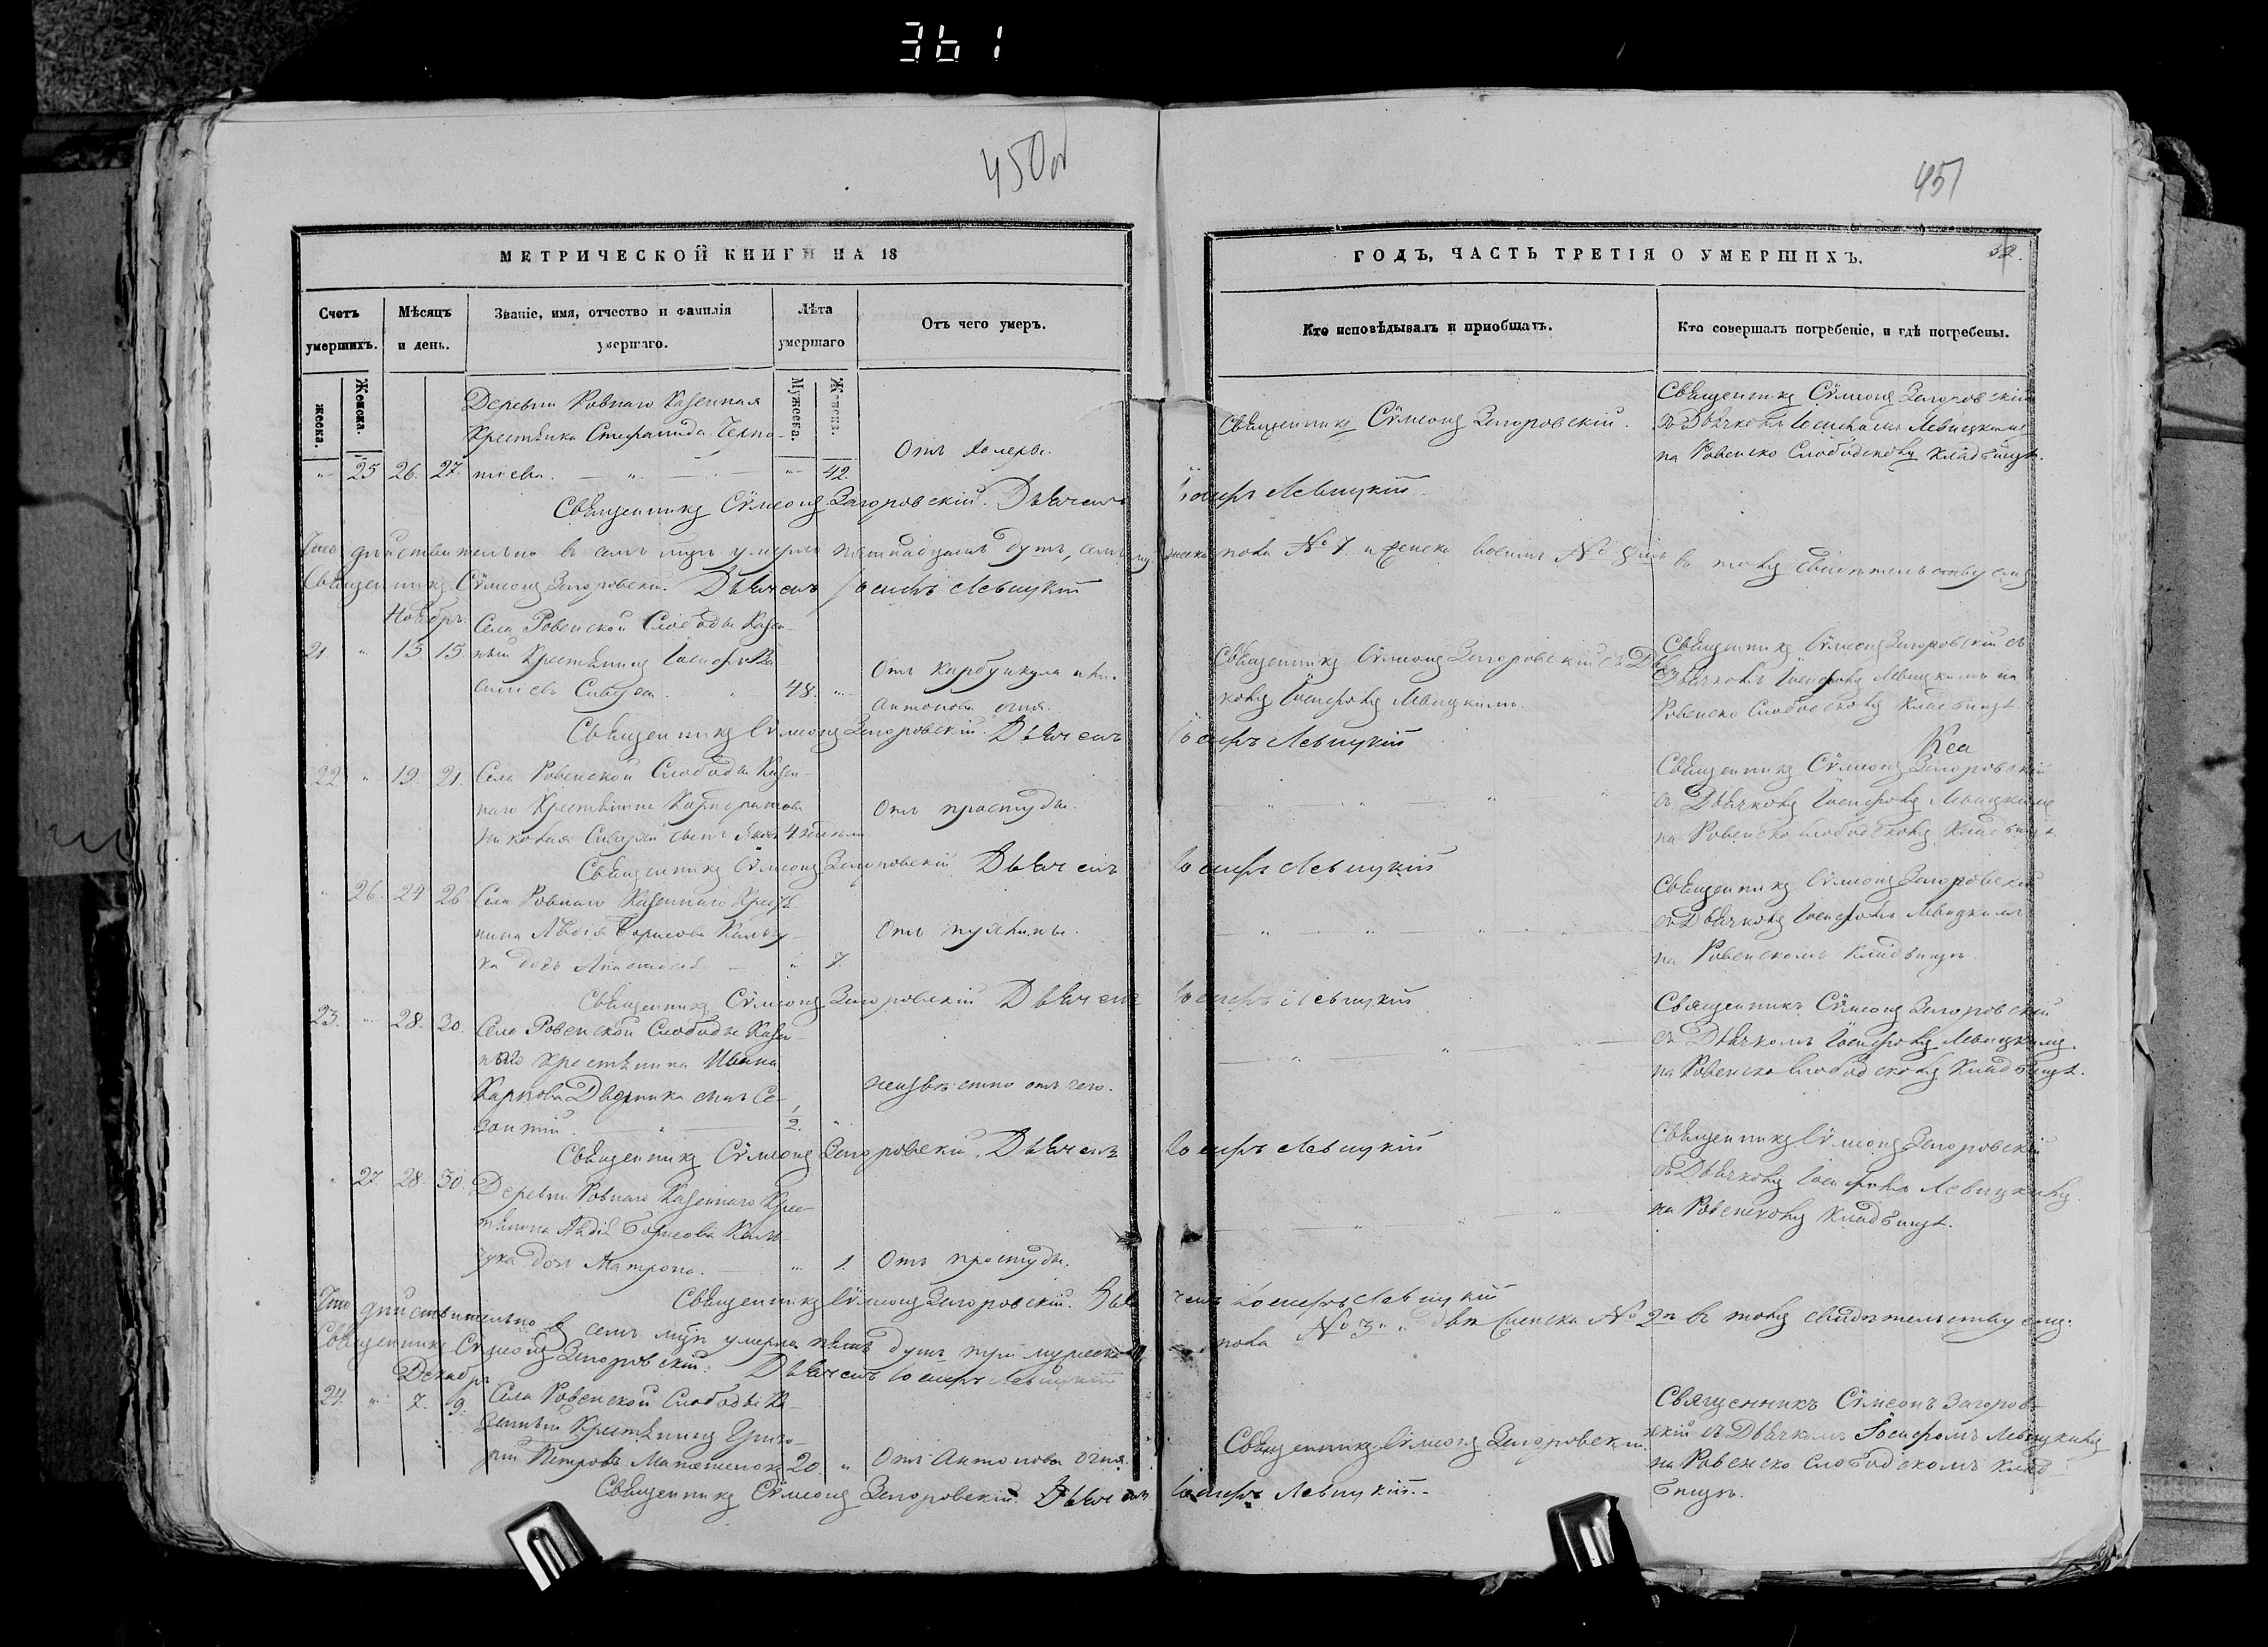 361
450об
451
МЕТРИЧЕСКОЙ КНИГИ НА 18
ГОДЪ, ЧАСТЬ ТРЕТІЯ О УМЕРШИХЪ.
Счетъ умершихъ.
Мѣсяцъ и день.
Званіе, имя, отчество и фамилія умершаго.
Лѣта умершаго
Отъ чего умеръ.
Кто исповѣдывалъ и пріобщалъ.
Кто совершалъ погребеніе, и гдѣ погребены.
жеска.
Женска.
Мужеска.
Женска.
Деревни Ровнаго Казенная
Крестянка Стефанида
25 26. 27. 42.
Отъ холеры.
Священникъ Сѵмеонъ Загоровскій.
Священникъ Сѵмеонъ Загоровскій
съ Дьячкомъ Іосифомъ Левицкимъ
на Ровенско Слободскомъ Кладбищѣ.
Священникъ Сѵмеонъ Загоровскій. Дьячекъ Іосифъ Левицкій
Что дѣйствительно въ семъ мцѣ умерло пятнадцать душъ, мужеска пола № 7. и женска восемь № 8 въ томъ свидѣтельствуемъ
Священникъ Сѵмеонъ Загоровскій. Дьячекъ Іосифъ Левицкій
Ноябрь.
Села Ровенской Слободы Казен-
21. " 13. 15. ный Крестянинъ Іосифъ Ва
силіевъ 48. "
Отъ карбункула или
антонова огня.
Священникъ Сѵмеонъ Загоровскій съ Дья
чкомъ Іосифомъ Левицкимъ.
Священникъ Сѵмеонъ Загоровскій съ
Дьячкомъ Іосифомъ Левицкимъ на
Ровенско Слободскомъ Кладбищѣ.
Священникъ Сѵмеонъ Загоровскій. Дьячекъ Іосифъ Левицкій
22. " 19. 21. Села Ровенской Слободы Казен-
наго Крестянина
сынъ
Отъ простуды.
Священникъ Сѵмеонъ Загоровскій
съ Дьячкомъ Іосифомъ Левицкимъ
на Ровенско Слободскомъ Кладбищѣ.
Священникъ Сѵмеонъ Загоровскій Дьячекъ Іосифъ Левицкій
" 26. 24 26. Села Ровнаго Казеннаго Крестя-
нина Авдія Борисова Кальчу-
ка дочь " 7.
Священникъ Сѵмеонъ Загоровскій
съ Дьячкомъ Іосифомъ Левицкимъ
на Ровенскомъ Кладбищѣ.
Священникъ Сѵмеонъ Загоровскій Дьячекъ Іосифъ Левицкій
23. " 28. 30. Села Ровенской Слободы Казен-
наго крестянина Ивана
Карпова Дворника сынъ
1/2. "
неизвѣстно отъ чего.
Священникъ Сѵмеонъ Загоровскій
съ Дьячкомъ Іосифомъ Левицкимъ.
на Ровенско Слободскомъ Кладбищѣ.
Священникъ Сѵмеонъ Загоровскій. Дьячекъ Іосифъ Левицкій
" 27. 28. 30. Деревни Ровнаго Казеннаго Крес-
тянина Авдія Борисова Каль-
чука дочь Матрона. " 1. Отъ простуды.
Священникъ Сѵмеонъ Загоровскій
съ Дьячкомъ Іосифомъ Левицкимъ.
на Ровенскомъ Кладбищѣ.
Священникъ Сѵмеонъ Загоровскій. Дьячекъ Іосифъ Левицкій
Что дѣйствительно въ семъ мцѣ умерло пять душъ три мужеска пола № 3 двѣ женска № 2 въ томъ свидѣтельствуемъ.
Священникъ Сѵмеонъ Загоровскій. Дьячекъ Іосифъ Левицкій
Декабрь
24. " 7. 9. Села Ровенской Слободы Ка-
зенный Крестянинъ Григо-
рій Петровъ 20. " Отъ Антонова огня.
Священникъ Сѵмеонъ Загоровскій.
Священникъ Сѵмеонъ Загоров-
скій съ Дьячкомъ Іосифомъ Левицкимъ
на Ровенско Слободскомъ Клад-
бищѣ.
Священникъ Сѵмеонъ Загоровскій. Дьячекъ Іосифъ Левицкій.